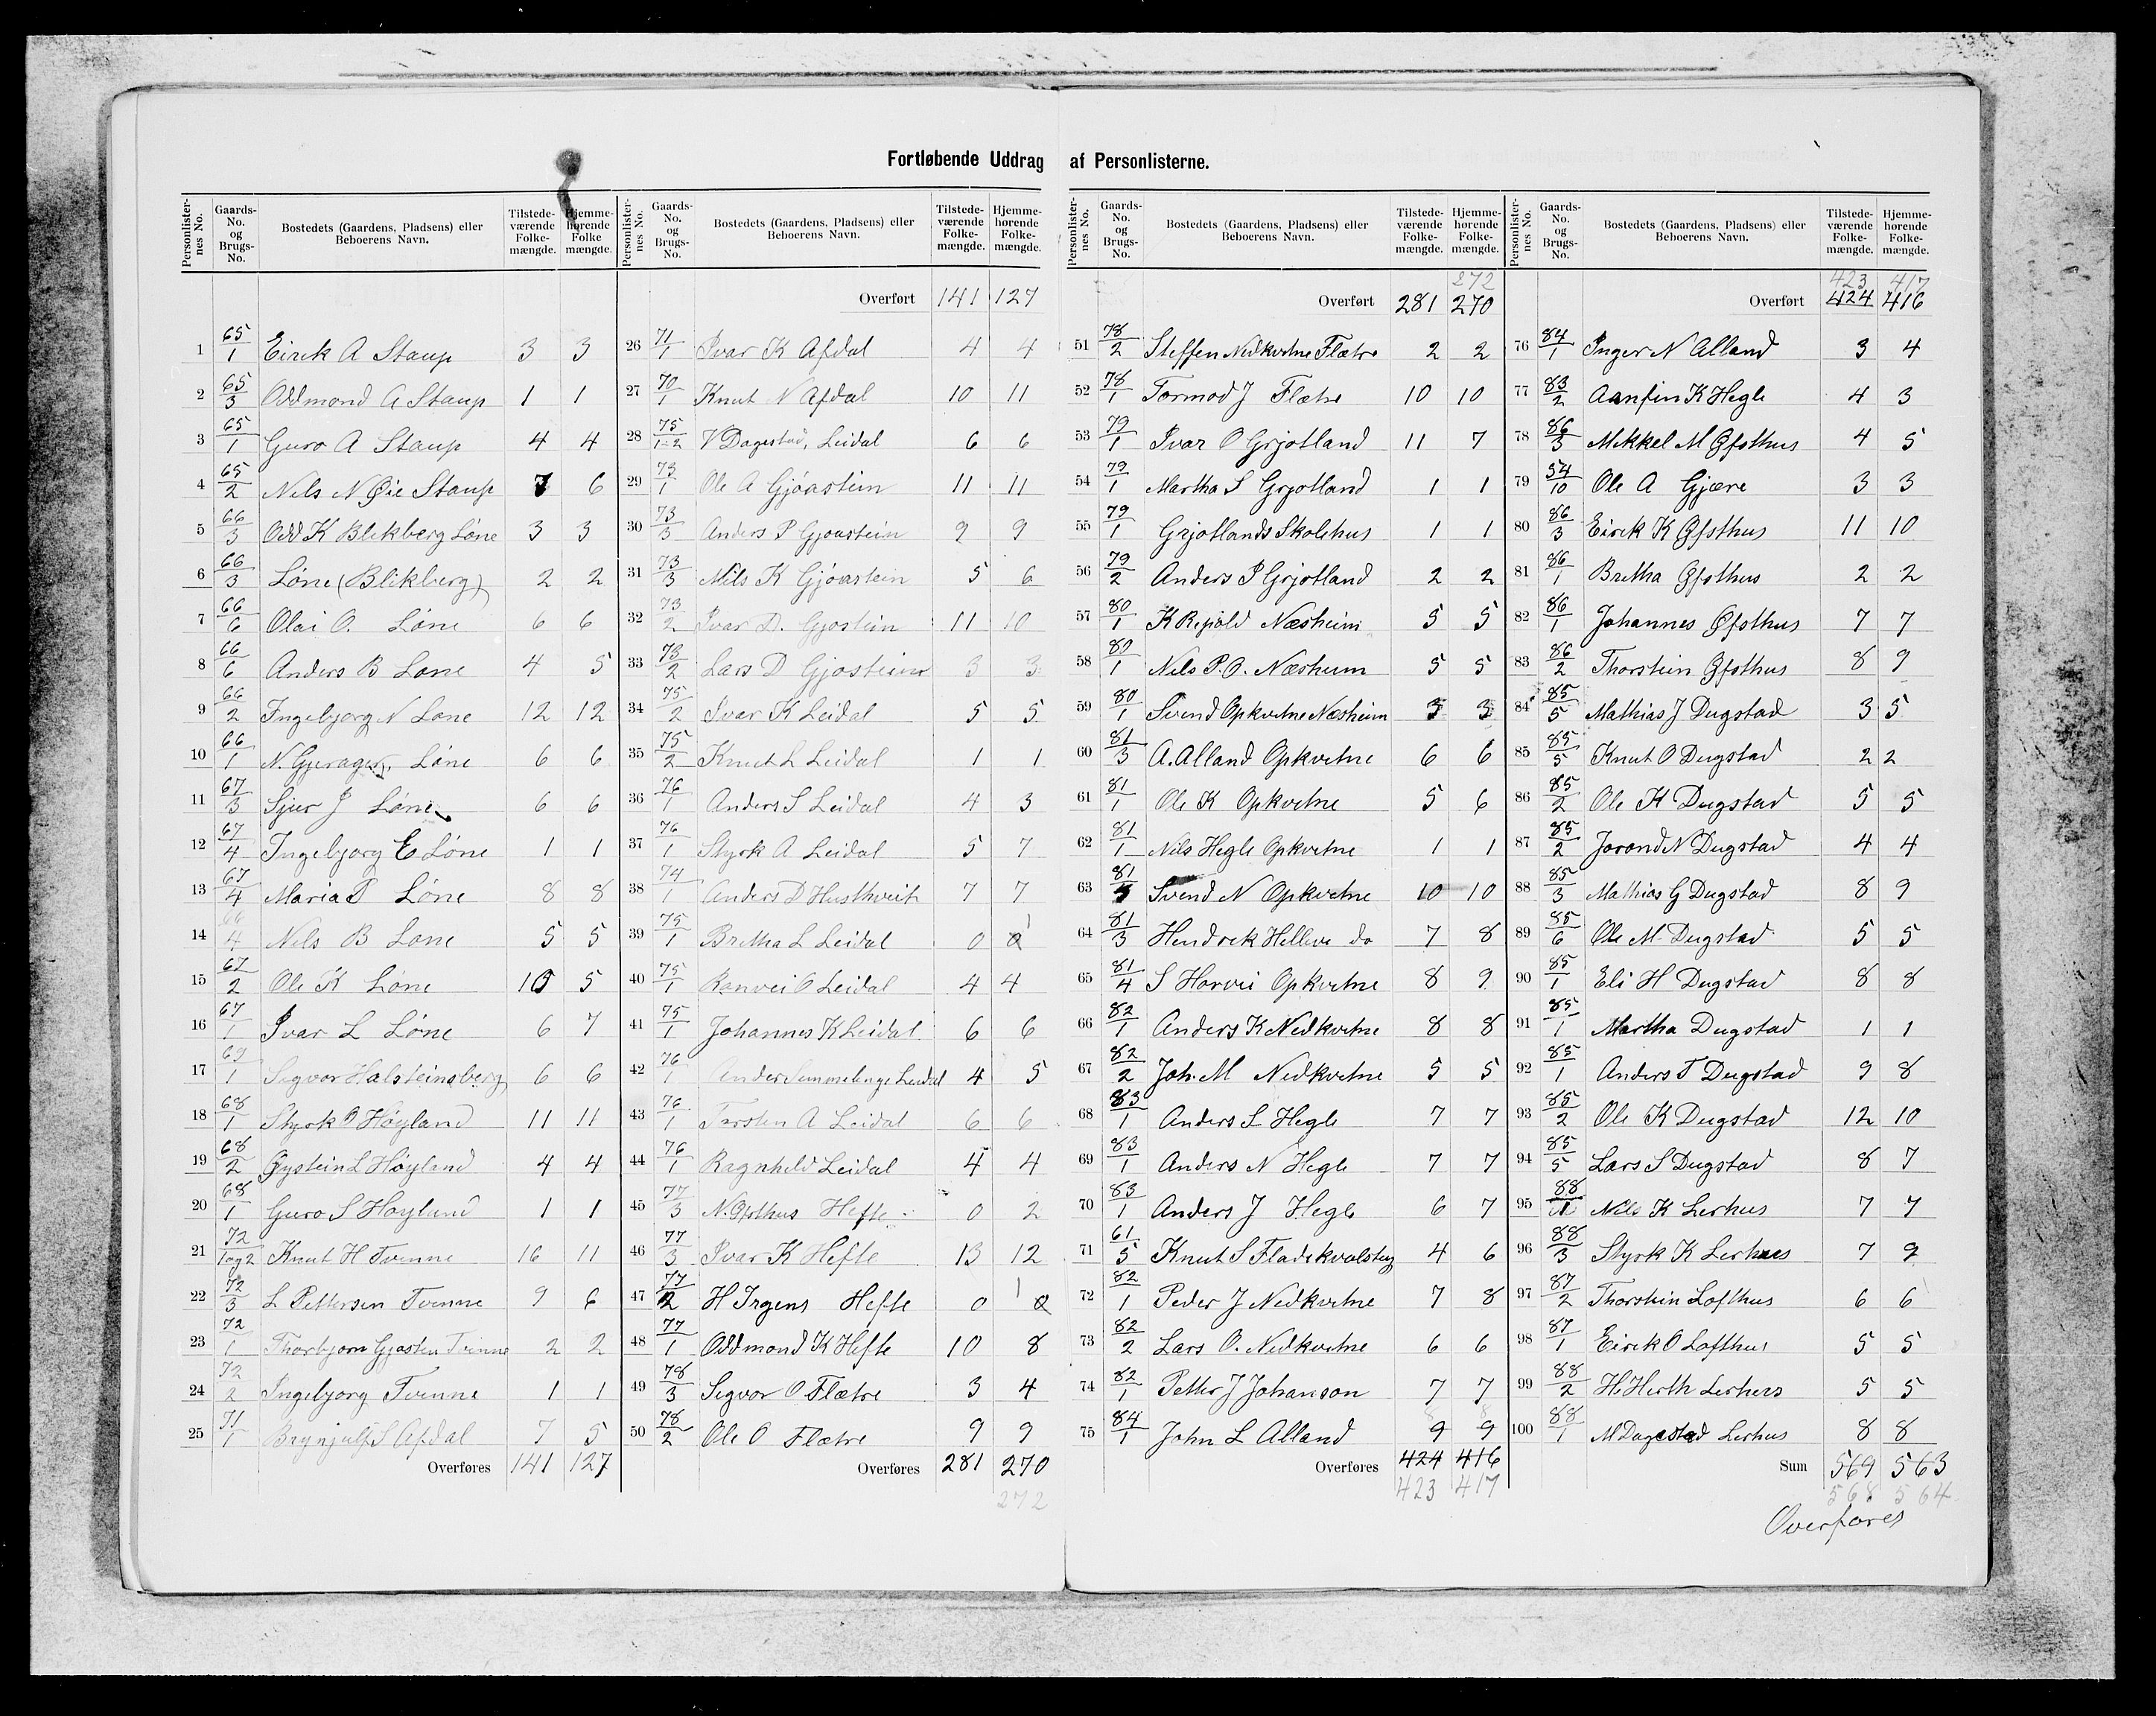 Fortløbende Uddrag af Personlisterne.
Personlister-nes No. Gaards-No. og Brugs-No. Bostedets (Gaardens, Pladsens) eller Beboerens Navn. Tilstede-værende Folke-mængde. Hjemme-hørende Folke-mængde.
1 65/1 Eirik A Staup 3 3
2 65/3 Oddmond A Staup 1 1
3 65/1 Guro A Staup 4 4
4 65/2 Nils N Øie Staup 7 6
5 66/3 Odd K Blekberg Løne 3 3
6 66/3 Løne (Blikberg) 2 2
7 66/6 Olai O. Løne 6 6
8 66/6 Anders B Løne 4 5
9 66/2 Ingebjørg N Løne 12 12
10 66/1 N. Gjerager, Løne 6 6
11 67/3 Sjur J Løne 6 6
12 67/4 Ingebjørg E Løne 1 1
13 67/4 Maria T Løne 8 8
14 66/4 Nils B Løne 5 5
15 67/2 Ole K Løne 10 5
16 67/1 Ivar L Løne 6 7
17 69/1 Sigvor Halsteinsberg 6 6
18 68/1 Styrk O Høyland 11 11
19 68/2 Øystein L Høyland 4 4
20 68/1 Guro S Høylund 1 1
21 72/1og2 Knut H Tvenne 16 11
22 72/3 L Pettersen Tvenne 9 6
23 72/1 Thorbjørn Gjøsten Tvinne 2 2
24 72/2 Ingebjørg Tvenne 1 1
25 71/1 Brynjulf S Afdal 7 5
Overføres 141 127
Personlister-nes No. Gaards-No. og Brugs-No. Bostedets (Gaardens, Pladsens) eller Beboerens Navn. Tilstede-værende Folke-mængde. Hjemme-hørende Folke-mængde.
Overført 141 127
26 71/1 Ivar K Afdal 4 4
27 70/1 Knut N Afdal 10 11
28 75/1-2 V Dagestad, Leidal 6 6
29 73/1 Ole A Gjøastein 11 11
30 73/3 Anders P Gjøastein 9 9
31 73/3 Nils K Gjøastein 5 6
32 73/2 Ivar D. Gjøstein 11 10
33 73/2 Lars D Gjøstein 3 3
34 75/2 Ivar K Leidal 5 5
35 75/2 Knut L Leidal 1 1
36 76/1 Anders S Leidal 4 3
37 76/1 Styrk A Leidal 5 7
38 74/1 Anders D Husthveit 7 7
39 75/1 Bretha L Leidal 0 0 1
40 75/1 Ranvei O Leidal 4 4
41 75/1 Johannes K Leidal 6 6
42 76/1 Anders Leidal 4 5
43 76/1 Torsten A Leidal 6 6
44 76/1 Ragnhild Leidal 4 4
45 77/3 N. Øfsthus Hefte 0 2
46 77/3 Ivar K Hefte 13 12
47 77/2 H Irgens Hefte 0 0 1
48 77/1 Oddmond K Hefte 10 8
49 78/3 Sigvor O Flætre 3 4
50 78/2 Ole O Flætre 9 9
Overføres 281 270
272
Personlister-nes No. Gaards-No. og Brugs-No. Bostedets (Gaardens, Pladsens) eller Beboerens Navn. Tilstede-værende Folke-mængde. Hjemme-hørende Folke-mængde.
272
Overført 281 270
51 78/2 Steffen Nedkvitne Flætre 2 2
52 78/1 Tormod J Flætre 10 10
53 79/1 Ivar O Grjotland 11 7
54 79/1 Martha S Grjotland 1 1
55 79/1 Grjotlands Skolehus 1 1
56 79/2 Anders P Grjotland 2 2
57 80/1 K Repold Næsheim 5 5
58 80/1 Nils P. O. Næsheim 5 5
59 80/1 Svend Opkvitne Næsheim 3 3
60 81/3 A. Alland Opkvitne 6 6
61 81/1 Ole K Opkvitne 5 6
62 81/1 Nils Hegle Opkvitne 1 1
63 81/ Svend N Opkvitne 10 10
64 81/3 Hendrek Helleve do 7 8
65 81/4 S Horvei Opkvitne 8 9
66 82/1 Anders K Nedkvitne 8 8
67 82/2 Joh. M Nedkvitne 5 5
68 83/1 Anders L Hegle 7 7
69 83/1 Anders N Hegle 7 7
70 83/1 Anders J Hegle 6 7
71 61/5 Knut S Fladekvalsteg 4 6
72 82/1 Peder J Nedkvitne 7 8
73 82/2 Lars O. Nedkvitne 6 6
74 82/1 Petter J Johanson 7 7
75 84/1 John L Alland 9 9
Overføres 424 416
423 417
Personlister-nes No. Gaards-No. og Brugs-No. Bostedets (Gaardens, Pladsens) eller Beboerens Navn. Tilstede-værende Folke-mængde. Hjemme-hørende Folke-mængde.
423 417
Overført 424 416
76 84/1 Inger N Alland 3 4
77 83/2 Aanfin K Hegle 4 3
78 86/3 Mikkel M Øfsthus 4 5
79 54/10 Ole A Gjære 3 3
80 86/3 Eirik K Øfsthus 11 10
81 86/1 Bretha Øfsthus 2 2
82 86/1 Johannes Øfsthus 7 7
83 86/2 Thorstein Øfsthus 8 9
84 85/5 Mathias J Dugstad 3 5
85 85/5 Knut O Dugstad 2 2
86 85/2 Ole K Dugstad 5 5
87 85/2 Jorond N Dugstad 4 4
88 85/3 Mathias G Dugstad 8 9
89 85/6 Ole M. Dugstad 5 5
90 85/1 Eli H Dugstad 8 8
91 85/1 Martha Dugstad 1 1
92 85/1 Anders T Dugstad 9 8
93 85/2 Ole K Dugstad 12 10
94 85/5 Lars S Dugstad 8 7
95 88/ Nils K Lerhus 7 7
96 88/3 Styrk K Lerhus 7 9
97 87/2 Thorstein Lofthus 6 6
98 87/1 Eirik O Lofthus 5 5
99 88/2 H. Herth Lerhus 5 5
100 88/1 M Dagestad Lerhus 8 8
Sum 569 563
568 564
Overføres